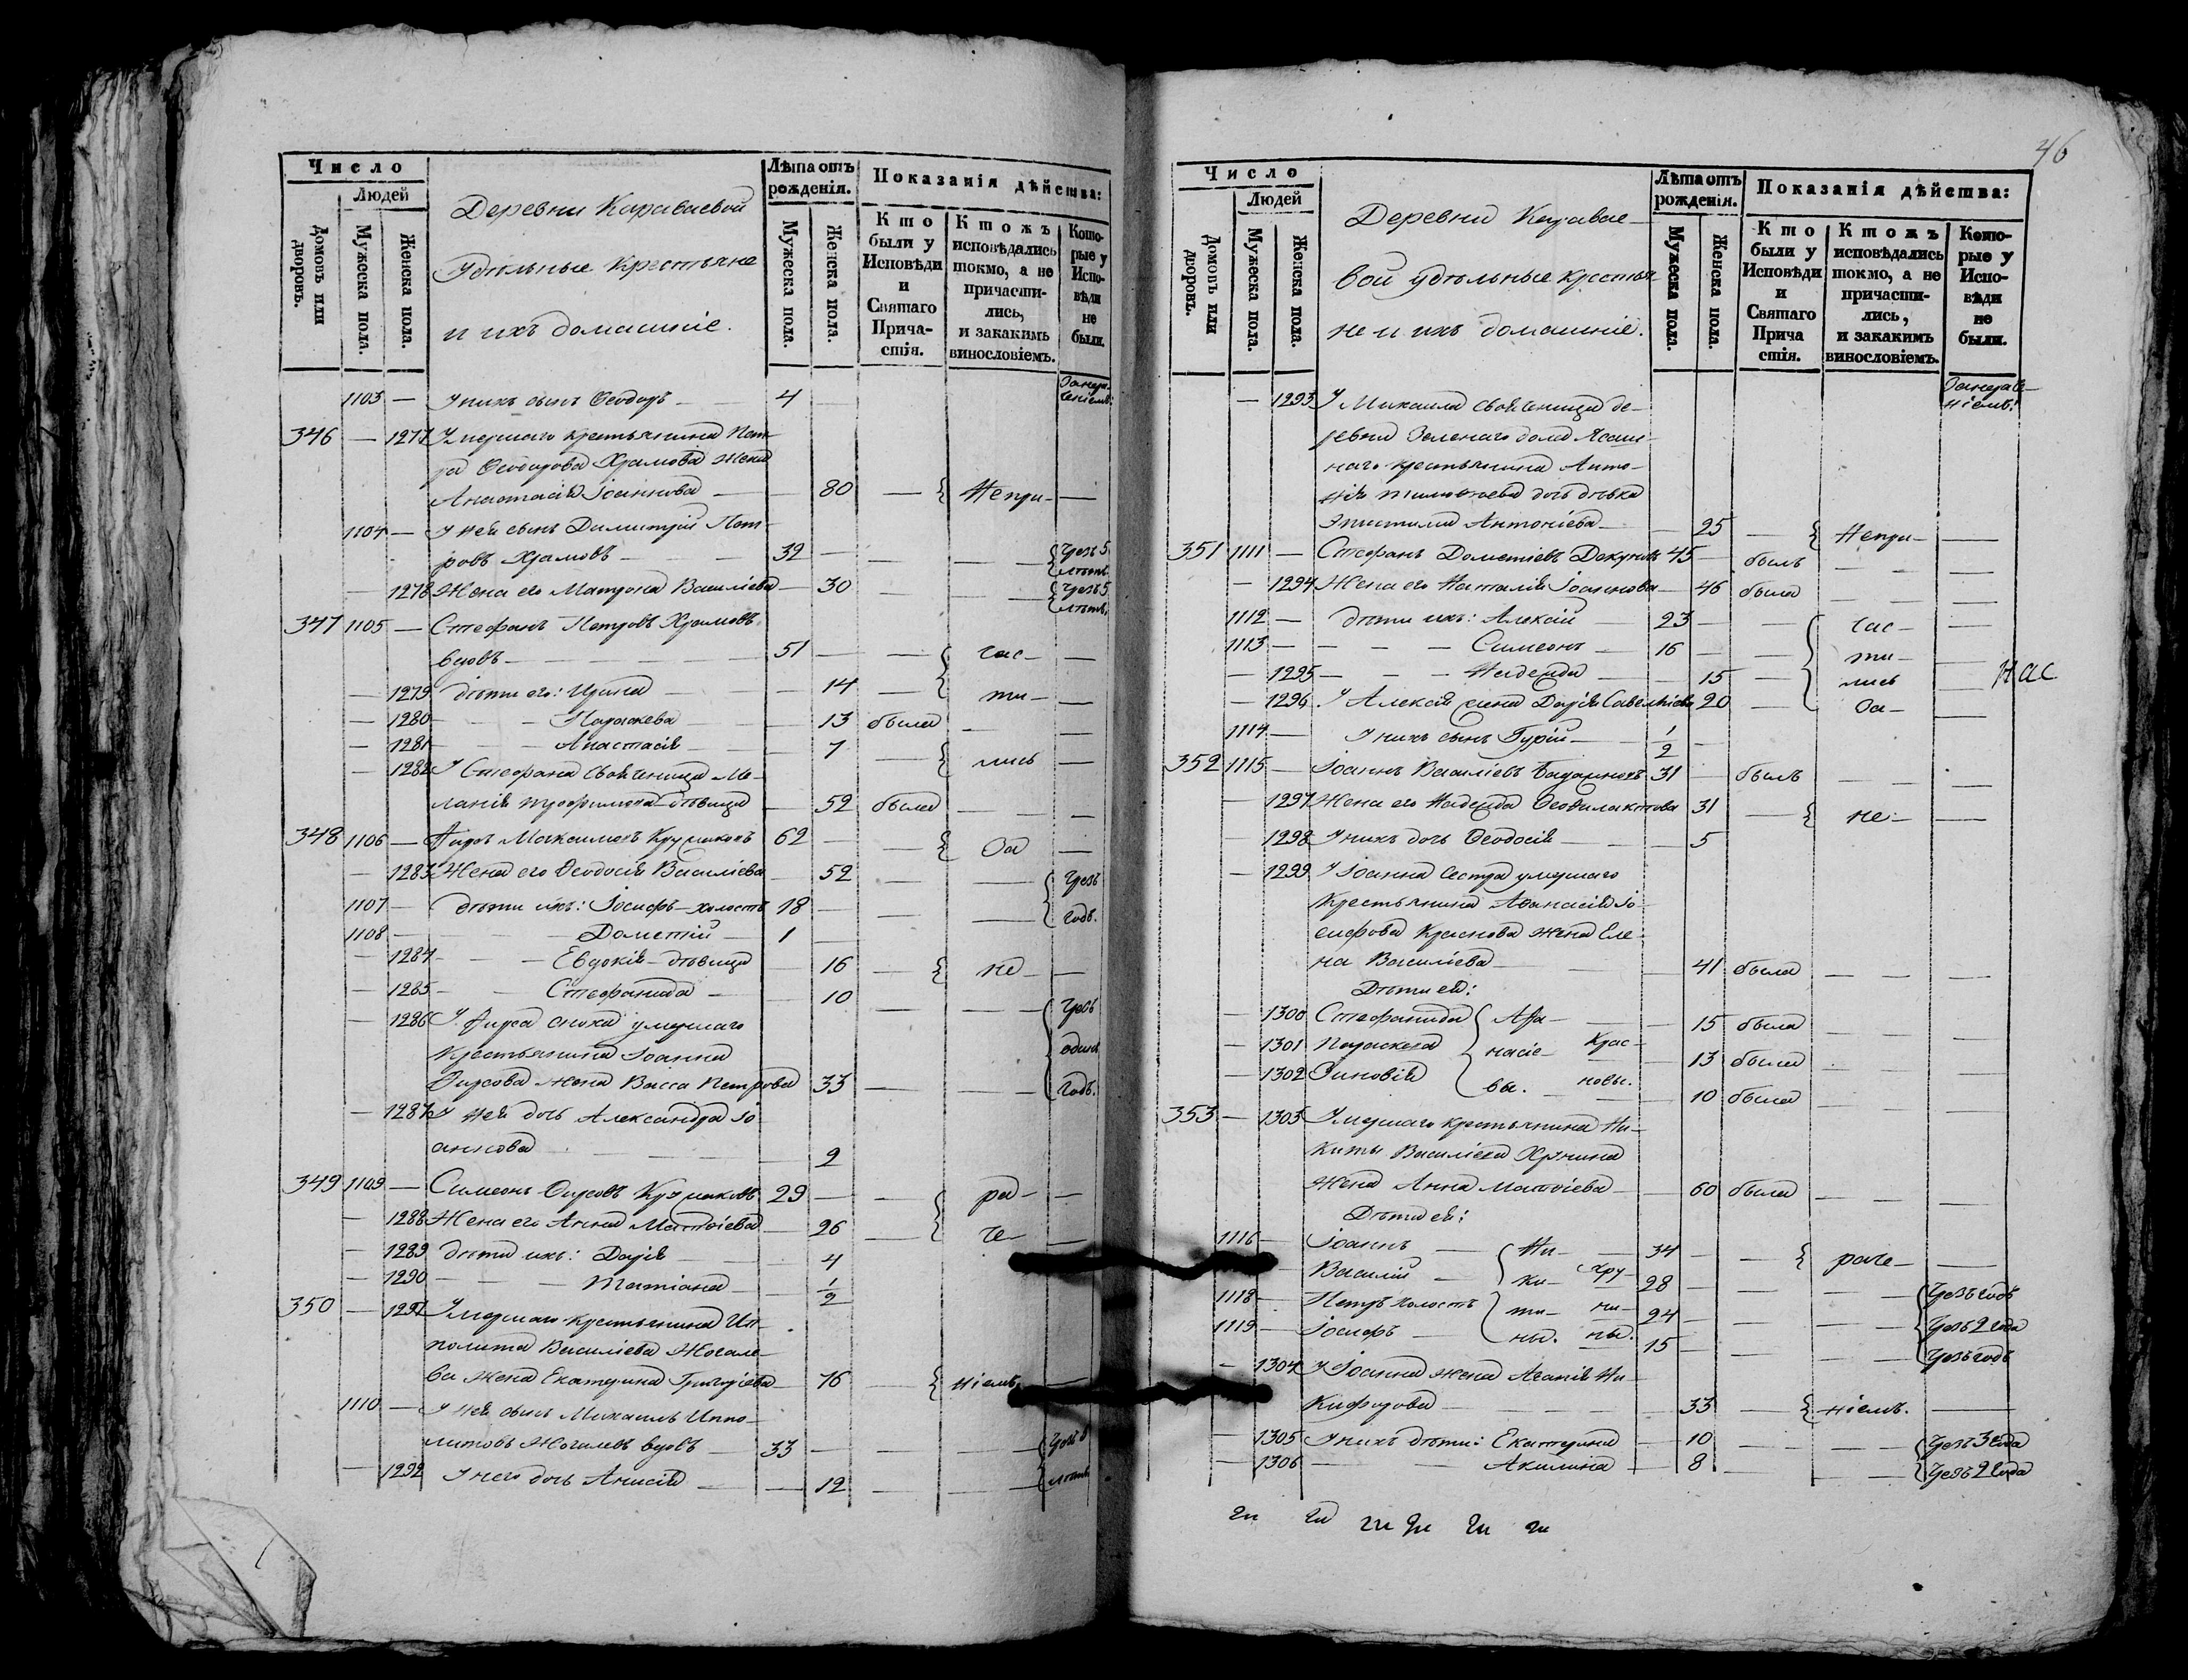 Число
Людей
Домовъ или дворовъ.
Мужеска пола.
Женска пола.
Деревни Караваевой
Удѣльные крестьяне
и ихъ домашніе.
Лѣта отъ рожденія.
Мужеска пола.
Женска пола.
Показанія дѣйства:
Кто были у Исповѣди и Святаго Прича-стія.
Ктожъ исповѣдались токмо, а не причасти-лись, и закакимъ винословіемъ.
Кото-рые у Испо-вѣди не были.
1103 — У нихъ сынъ Ѳеодоръ — 4
346 — 1277 Умершаго крестьянина Пет-
ра Ѳеодорова Храмова жена
Анастасія Іоаннова — 80 — Непри- —
1104 — У ней сынъ Димитрій Пет-
ровъ Храмовъ — 32 — Чрезъ 5 лѣтъ
— 1278 Жена его Матрона Василіева — 30 — Чрезъ 5 лѣтъ
347 1105 — Стефанъ Петровъ Храмовъ
вдовъ — 51 — час- —
— 1279 дѣти его: Ирина — 14 — ти- —
— 1280 — Параскева — 13 была — —
— 1281 — Анастасія — 7 — лись —
— 1282 У Стефана свояченица Ме-
ланія Трофимова дѣвица — 52 была — —
348 1106 — Ѳирсъ Максимовъ 62 — За —
— 1283 Жена его Ѳеодосія Василіева — 52 — Чрезъ
1107 — дѣти ихъ: Іосифъ — холостъ 18 — годъ.
1108 — Дометій — 1 —
— 1284 — Евдокія — дѣвица 16 — не —
— 1285 — Стефанида — 10 — Чрезъ
— 1286 У Ѳирса сноха умершаго
крестьянина Іоанна одинъ
Ѳирсова жена Васса Петрова 33 — годъ.
— 1287 У ней дочь Александра Іо-
аннова — 2
349 1109 — Симеонъ Ѳирсовъ 29 — ра- —
— 1288 Жена его Анна Матѳіева — 26 — че- —
— 1289 дѣти ихъ: Дарія — 4
— 1290 — Татіана — 1/2
350 — 1291 Умершаго крестьянина Ип-
полита Василіева
жена Екатерина Григоріева — 76 — ніемъ —
1110 — У ней сынъ Михаилъ Иппо-
литовъ вдовъ — 33 — Чрезъ
— 1292 У него дочь Анисія — 12 — лѣтъ
46
Число
Людей
Домовъ или дворовъ.
Мужеска пола.
Женска пола.
Деревни Каравае-
вой удѣльные крестья-
не и ихъ домашніе.
Лѣта отъ рожденія.
Мужеска пола.
Женска пола.
Показанія дѣйства:
Кто были у Исповѣди и Святаго Прича стія.
Ктожъ исповѣдались токмо, а не причасти-лись, и закакимъ винословіемъ.
Кото-рые у Испо-вѣди не были.
— 1293 У Михаила свояченица де-
ревни Зеленаго дола Ясаш-
наго крестьянина Анто-
нія Тимоѳеева дочь дѣвка
Антоніева — 25 — Непри- —
351 1111 — Стефанъ Дометіевъ 45 — былъ — —
— 1294 Жена его Наталія Іоаннова — 46 была — —
1112 — дѣти ихъ: Алексій — 23 — час- —
1113 — Симеонъ — 16 — ти- —
— 1295 — Надежда — 15 — лись — нас
— 1296 У Алексія жена Дарія Савельіева 20 — За- —
1114 — У нихъ сынъ Гурій — 1/2 —
352 1115 — Іоаннъ Василіевъ 31 — былъ — —
— 1297 Жена его Надежда Ѳеофилактова 31 — не- —
— 1298 У нихъ дочь Ѳеодосія — 5
— 1299 У Іоанна сестра умершаго
крестьянина Аѳанасія Іо-
сифова Краснова жена Еле-
на Василіева — 41 была — —
Дѣти ей:
— 1300 Стефанида Аѳа- — 15 была — —
— 1301 Параскева насіе- Крас- 13 была — —
— 1302 Зиновія вы. новы. 10 была — —
353 — 1303 Умершаго крестьянина Ни-
киты Василіева Хрунина
жена Анна Матѳіева — 60 была — —
Дѣти ей:
1116 — Іоаннъ — Ни- — 34 — раче- —
Василій — ки- Хру- 28 — Чрезъ годъ
1118 — Петръ холостъ ти- ни- 24 — Чрезъ 2 года
1119 — Іосифъ — ны. ны. 15 — Чрезъ годъ
— 1304 У Іоанна жена Агапія Ни-
кифорова — 33 — ніемъ. —
— 1305 У нихъ дѣти: Екатерина — 10 — Чрезъ 3 года
— 1306 — Акилина — 8 — Чрезъ 2 года